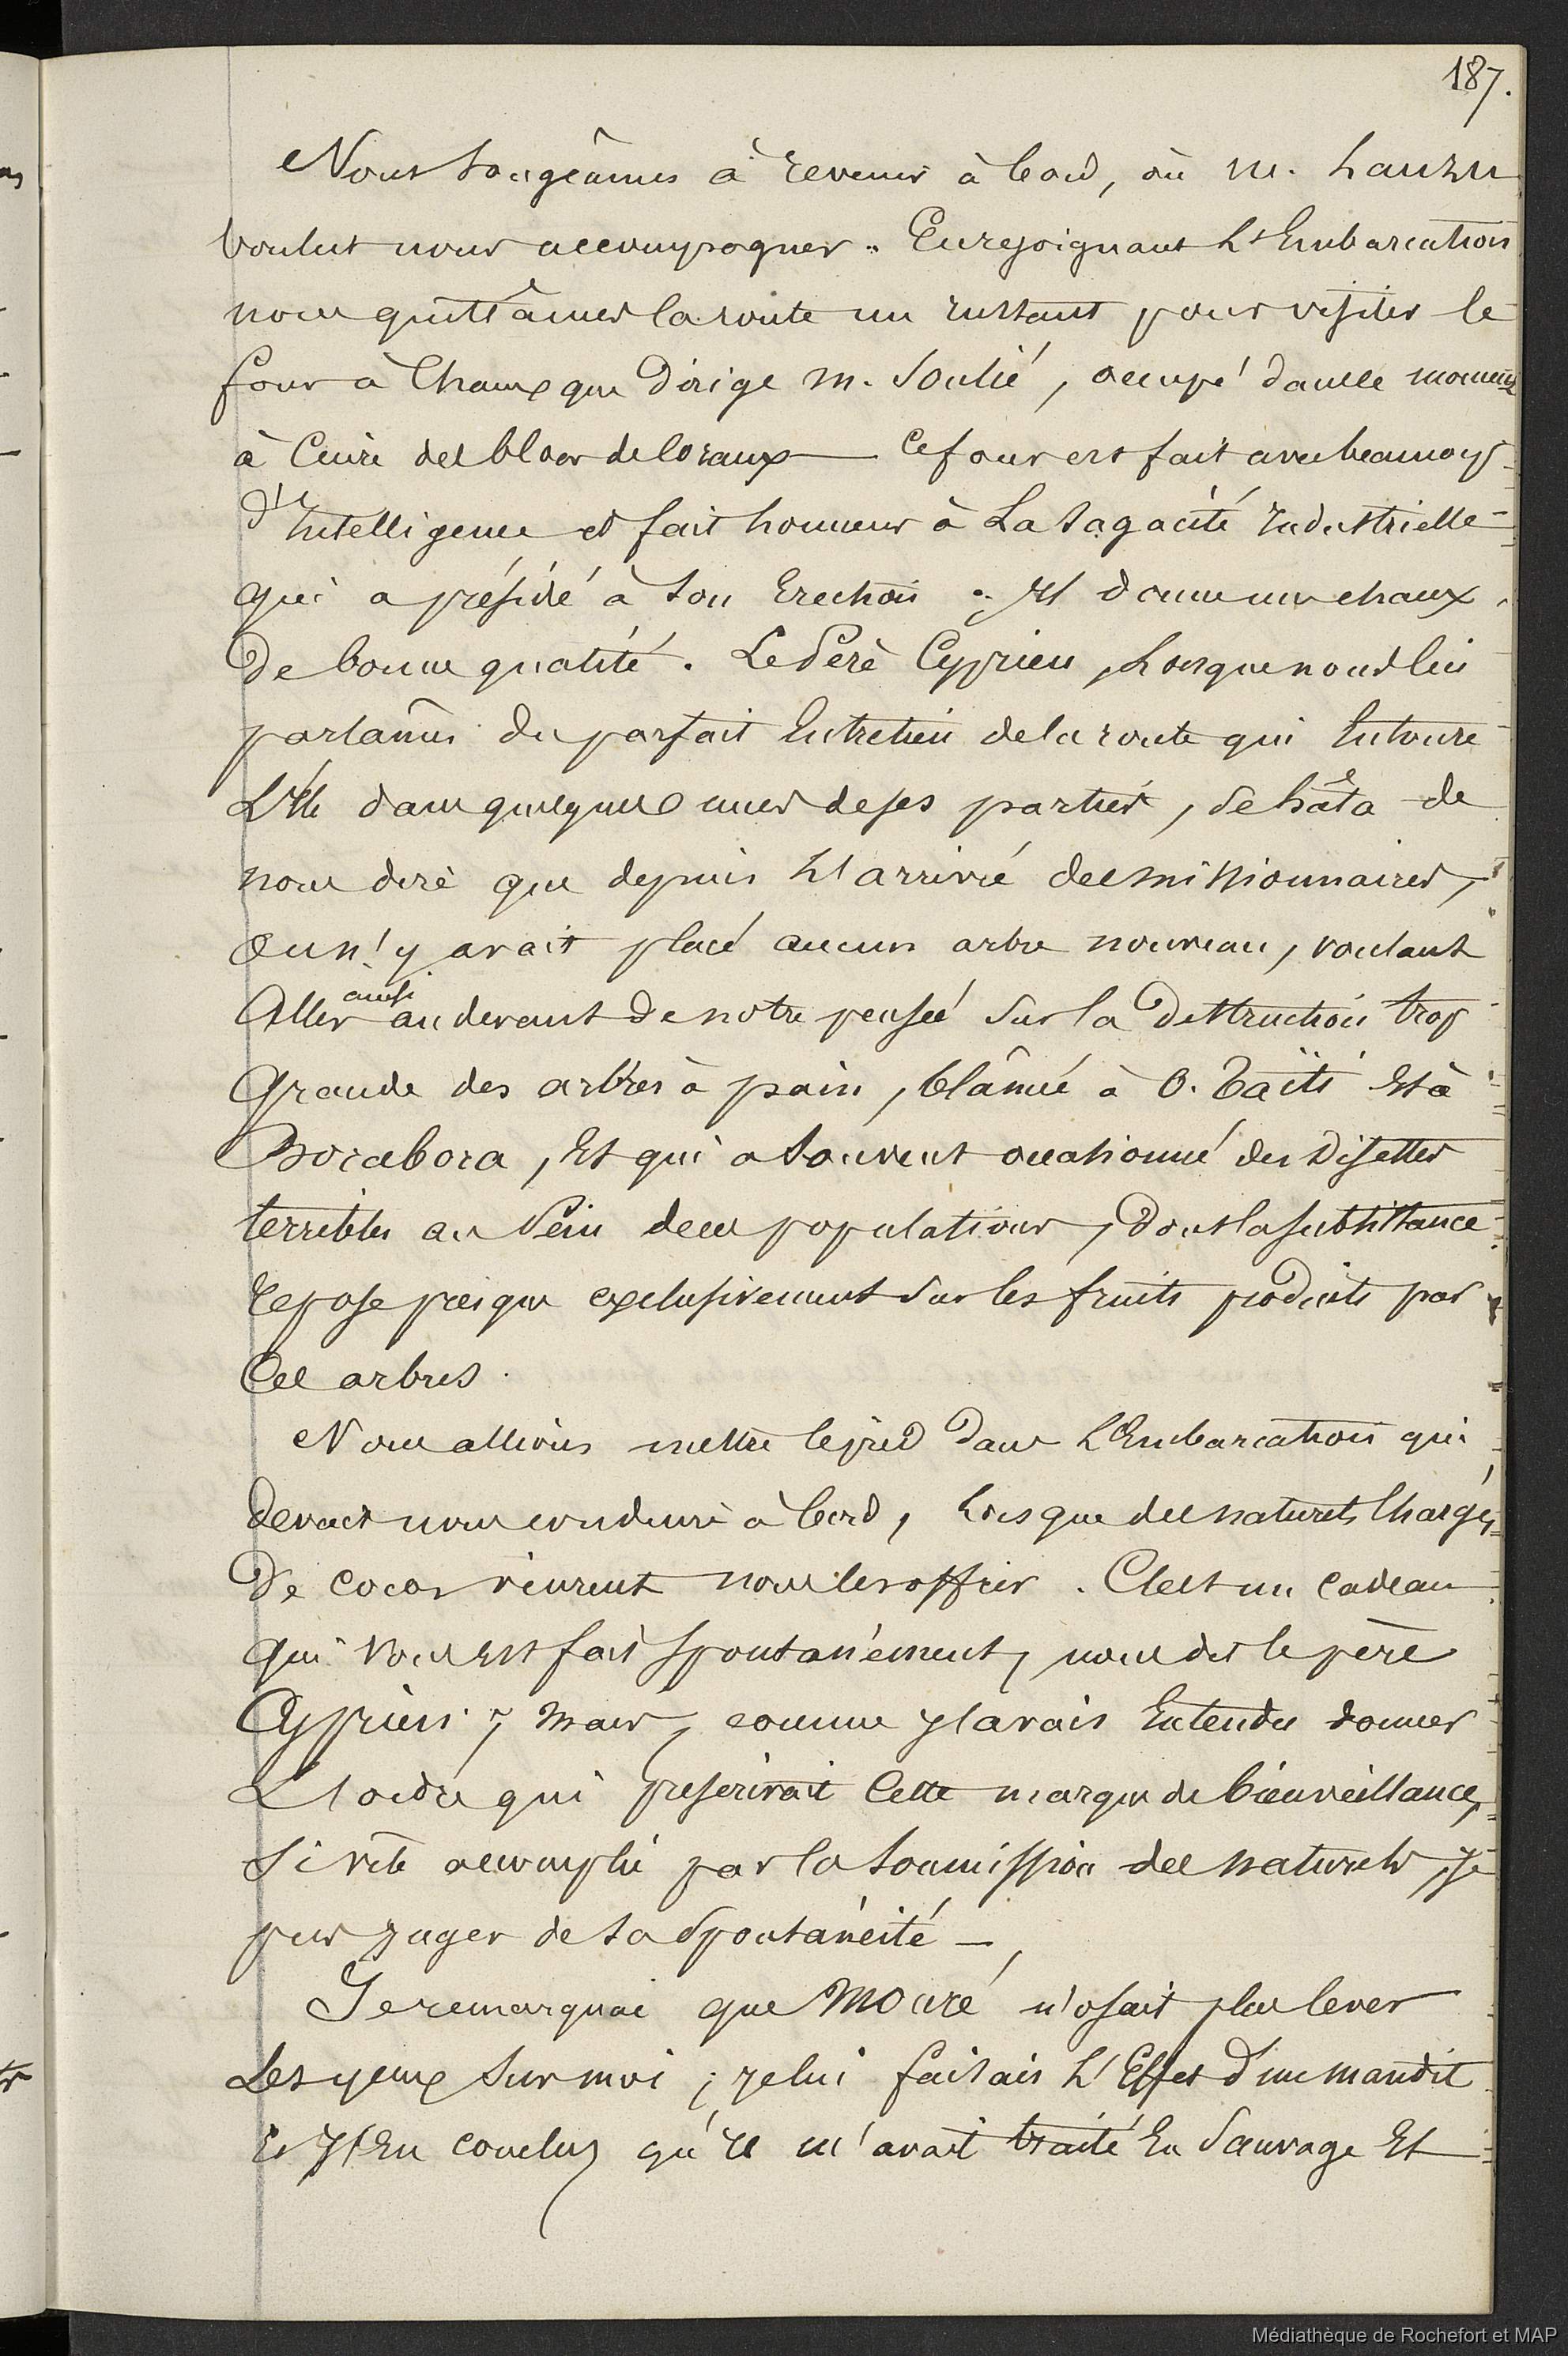 187.
Nous songeâmes à revenir à bord, où M. Lauzun
voulut nous accompagner. En rejoignant L'Embarcation
nous quittâmes la route un Instant pour visiter le
four à Chaux que Dirige M. Soulié, occupé dans ce moment
à Cuire des blocs de Coraux — Ce four est fait avec beaucoup
d'Intelligence et fait honneur à La Sagacité Industrielle
qui a présidé à son Erection. Il donne une chaux
De bonne qualité. Le Père Cyprien, Lorsque nous lui
parlâmes du parfait Entretien de la route qui Entoure
L'Ile dans quelques unes de ses parties, se hâta de
nous dire que depuis L'arrivée des missionnaires,
on n'y avait placé aucun arbre nouveau, voulant
Aller ainsi au devant De notre pensée sur la Destruction trop
Grande des arbres à pain, blâmée à O. Taïti Et à
Borabora, Et qui a souvent occasionné des Disettes
terribles au Sein de ces populations, Dont la subsistance
repose presque exclusivement sur les fruits produits par
Ces arbres.
Nous allions mettre le pied Dans L'Embarcation qui
devait nous conduire à bord, Lorsque des naturels Chargés
De cocos vinrent nous les offrir. C'est un Cadeau
qui vous Est fait spontanément, nous dit le père
Cyprien ; mais, comme J'avais Entendu donner
L'ordre qui prescrivait Cette marque de bienveillance,
si vite accomplie par la soumission des naturels, Je
pus Juger de sa Spontanéité —,
Je remarquai que Mouré n'osait plus lever
Les yeux sur moi ; Je lui faisais L'Effet d'un maudit
Et J'En conclus qu'Il m'avait traité En Sauvage Et
Médiathèque de Rochefort et MAP